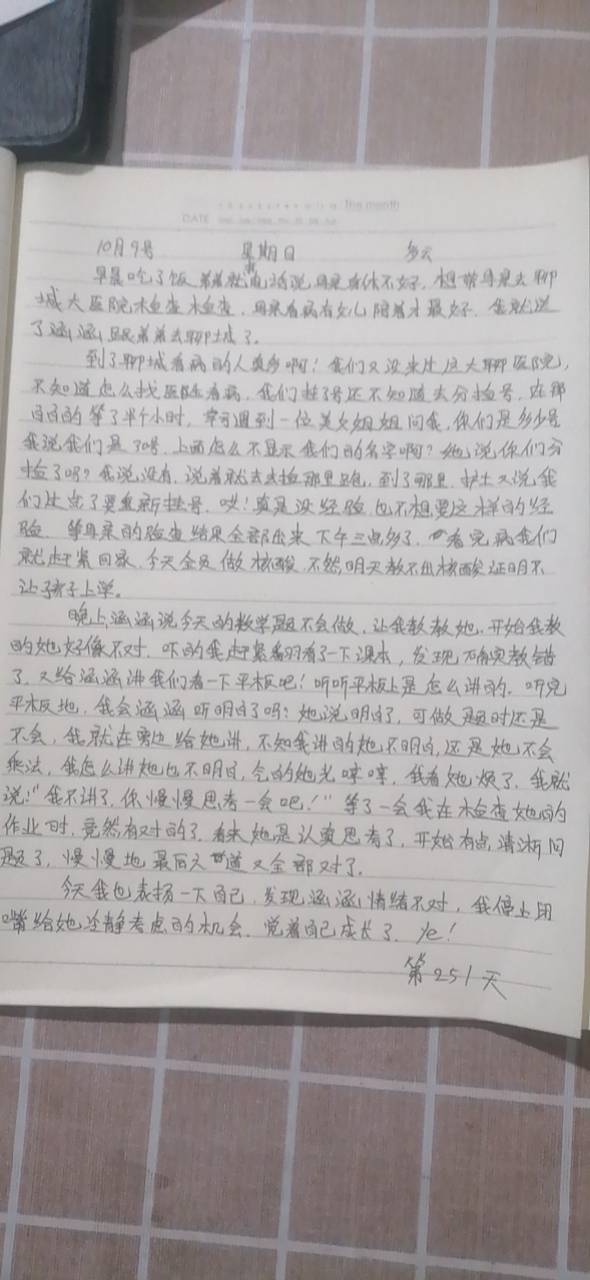 The month
DATE
10月9号 星期日 多云
早晨吃了饭弟弟就电话说母亲身体不好,想带母亲去聊
城大医院检查检查,母亲看病有女儿陪着才最好,我就送
了涵涵跟弟弟去聊城了。
到了聊城看病的人真多啊!我们又没来过这大聊医院,
不知道怎么找医生看病,我们挂了号还不知道去分检号,在那
白白的等了半个小时,幸可遇到一位美女姐姐问我,你们是多少号
我说我们是70号,上面怎么不显示我们的名字啊?她说你们分
检了吗?我说没有,说着就去去检那里跑,到了那里,护士又说我
们过完了要重新挂号,哎!真是没经验也不想要这样的经
验,等母亲的检查结果全部出来下午三点多了,看完病我们
就赶紧回家,今天全员做核酸,不然明天教不出核酸证明不
让孩子上学。
晚上涵涵说今天的数学题不会做,让我教教她,开始我教
的她好像不对,吓的我赶紧翻看了一下课本,发现确实教错
了,又给涵涵讲我们看一下平板吧!听听平板上是怎么讲的,听完
平板地,我会涵涵听明白了吗?她说明白了,可做题时还是
不会,我就在旁边给她讲,不知我讲的她不明白,还是她不会
乘法,我怎么讲她也不明白,气的她光哼哼,我看她烦了,我就
说:“我不讲了,你慢慢思考一会吧!”等了一会我在检查她的
作业时,竟然有对的了,看来她是认真思考了,开始有点清淅问
题了,慢慢地最后六道又全部对了。
今天我也表扬一下自己,发现涵涵情绪不对,我停止闭
嘴给她冷静考虑的机会,觉着自己成长了,
第251天